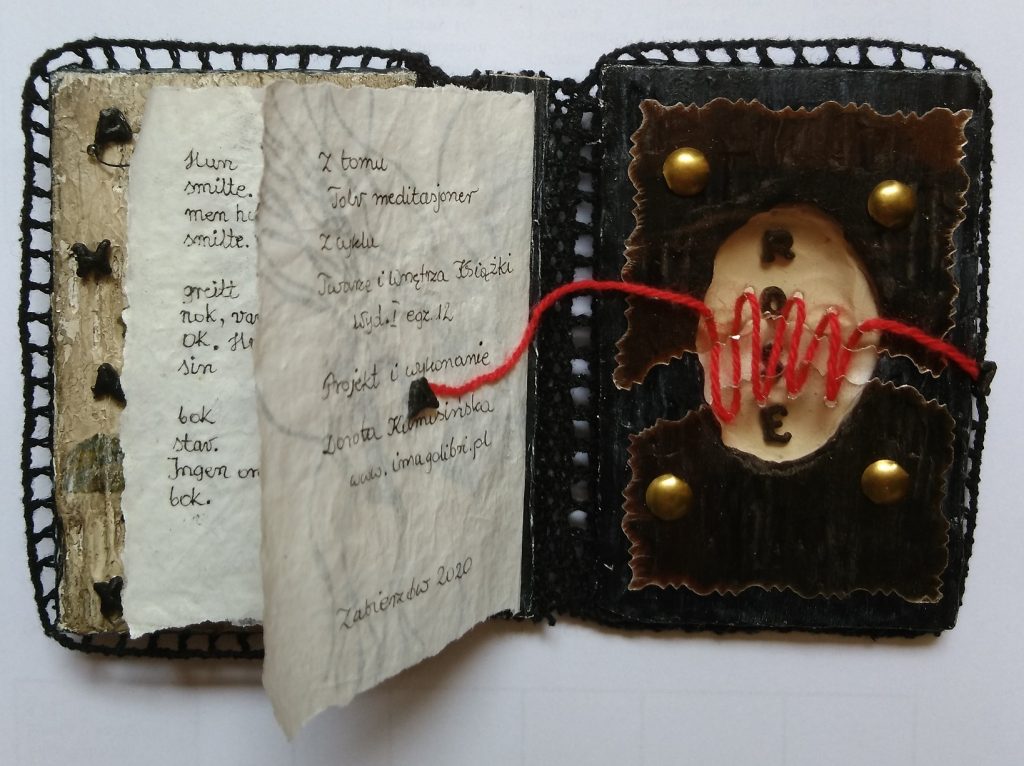 Hun
smilte.
men
smilte.
greitt
nok,
ok.
sin
bok
stav.
Ingen
bok.
Z tomu
Tolv meditasjoner
Z cyklu
Twarze i Wnętrza Książki
wyd. I egz. 12
Projekt i wykonanie
Dorota Kamisińska
www. imagolibri.pl
Zabierzów 2020
R
O
E